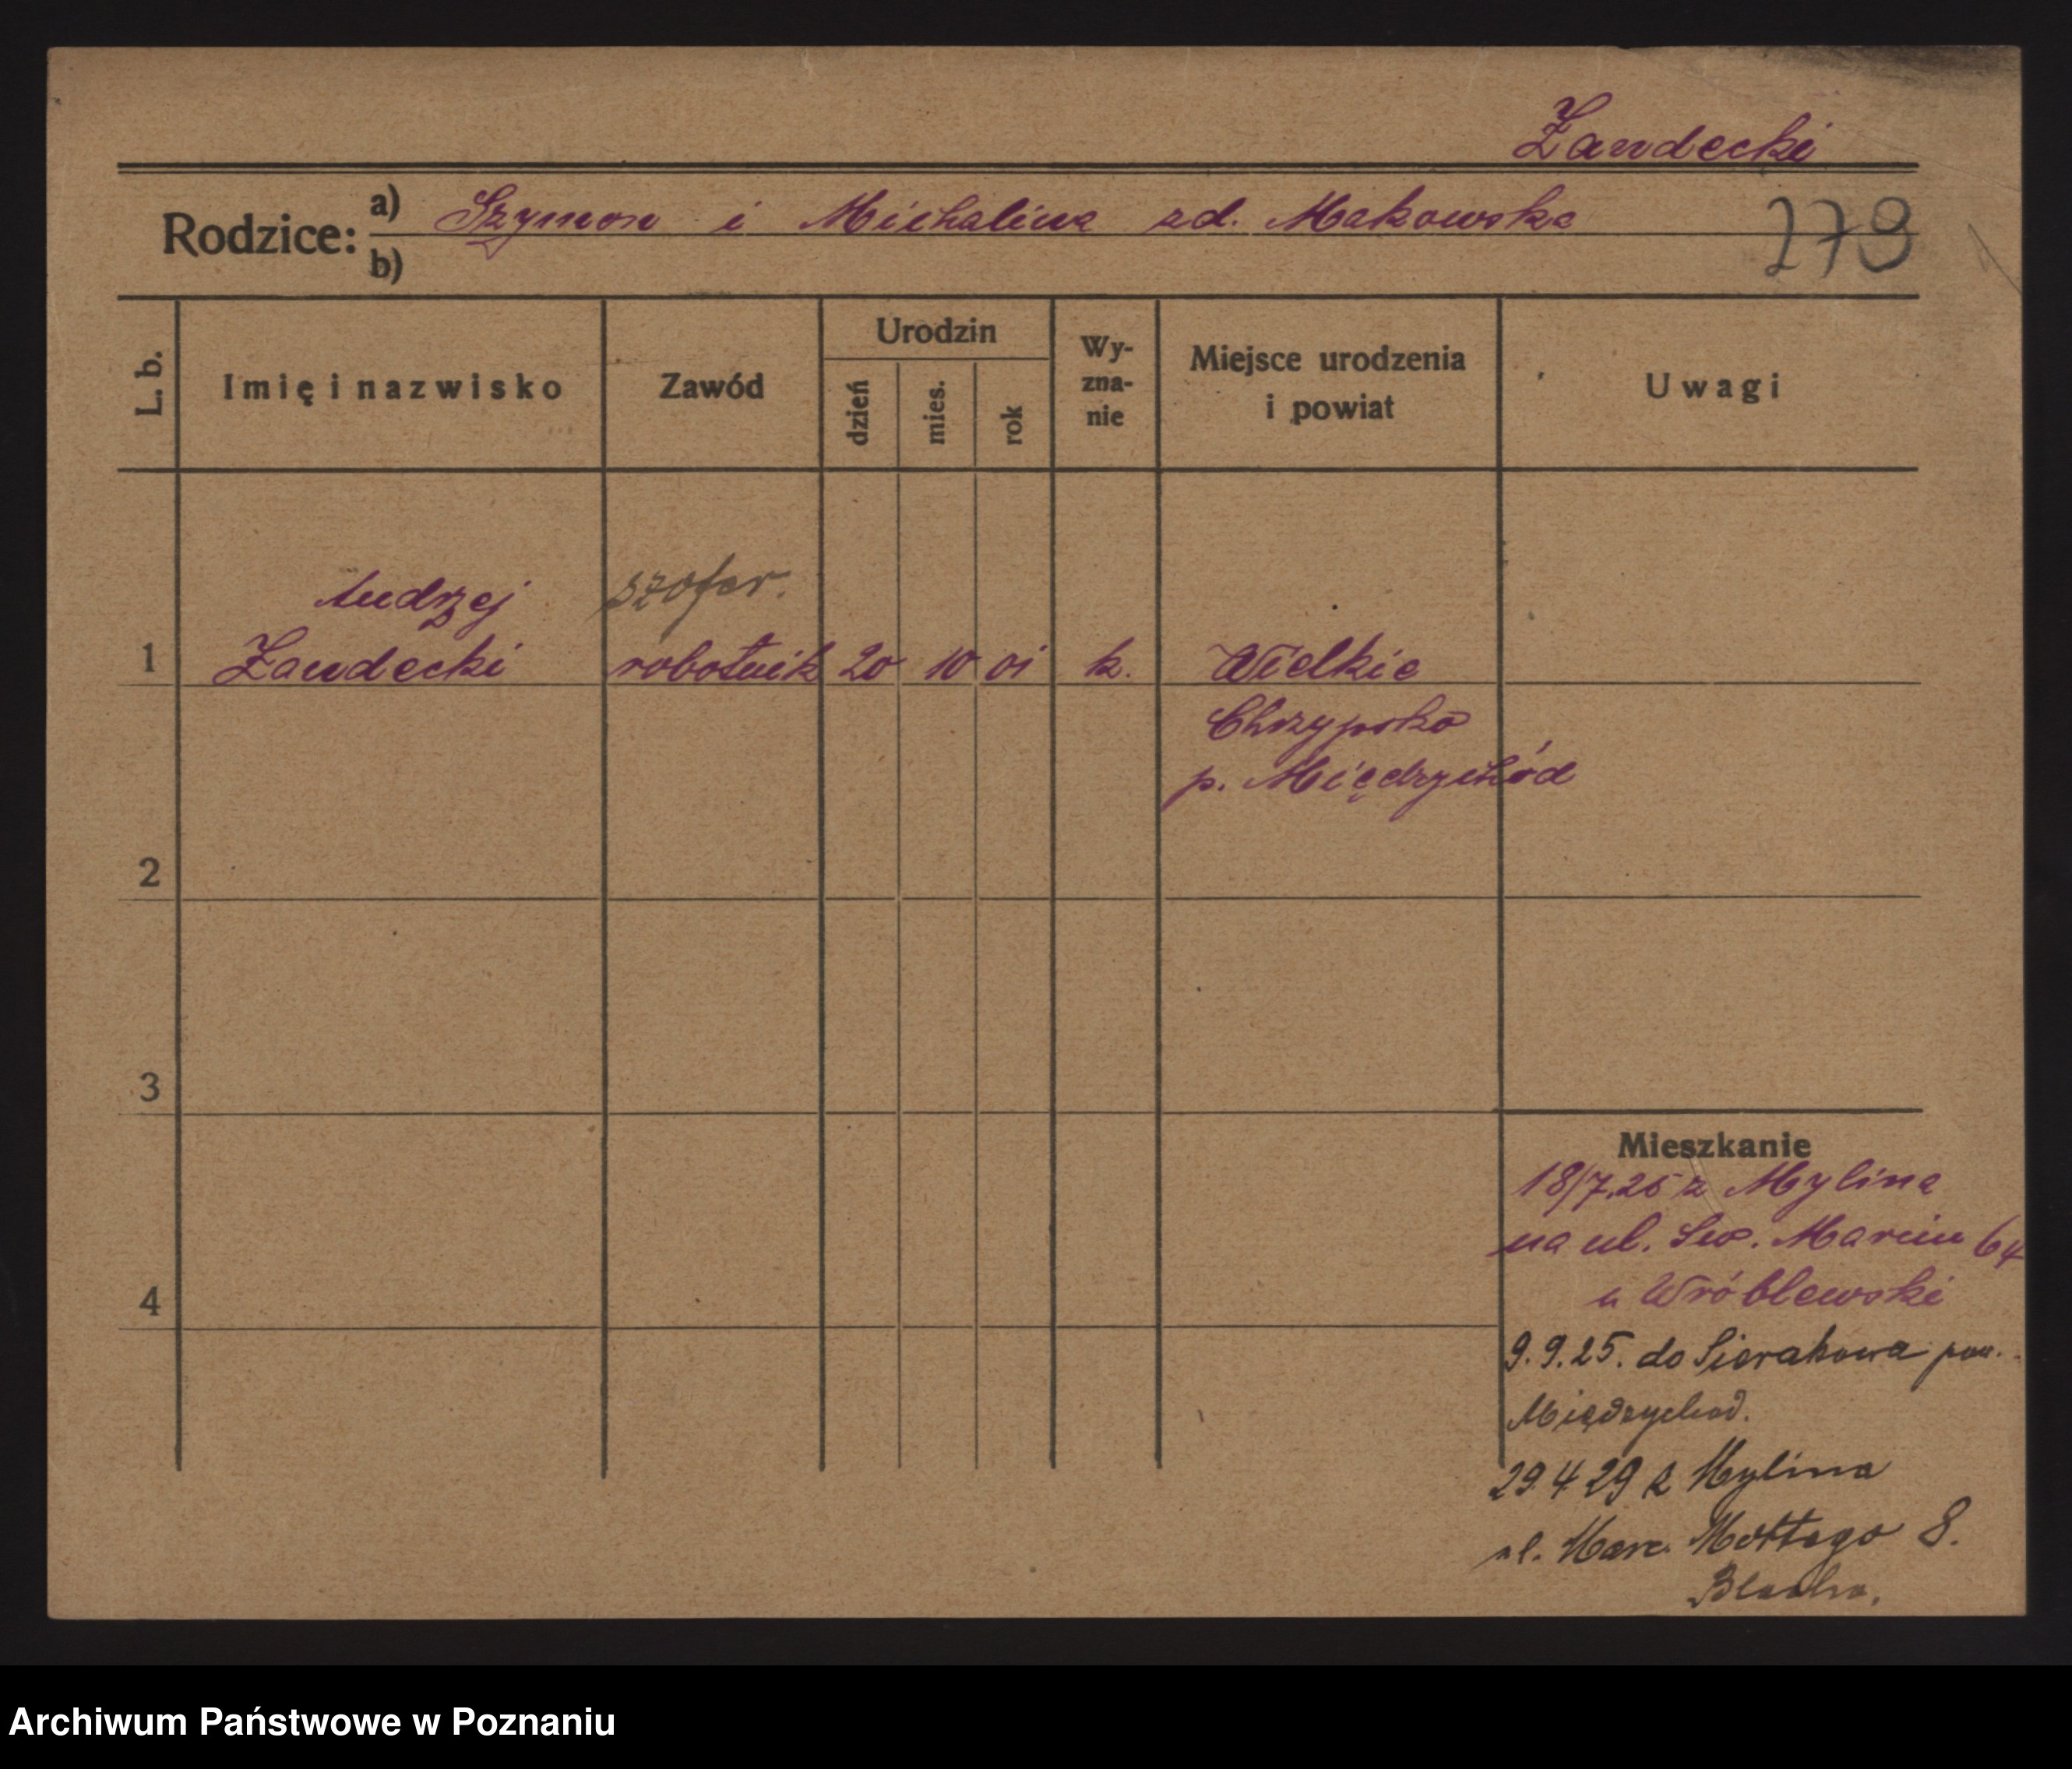 Żandecki
Rodzice: a) Szymon i Michalina zd. Makowska
279
b)
L. b.
Imię i nazwisko
Zawód
Urodzin
dzień
mies.
rok
Wy-
zna-
nie
Miejsce urodzenia
i powiat
Uwagi
Andrzej
szofer.
1 Żandecki robotnik 20 10 01 k. Wielkie
Chrzypsko
p. Międzychód
2
3
4
Mieszkanie
18/7.25 z Mylina
na ul. Św. Marcin 64
u Wróblewski
9.9.25. do Sierakowa pow.
Międzychod.
29 4 29 z Mylina
ul. Marc. Mottego 8.
Archiwum Państwowe w Poznaniu